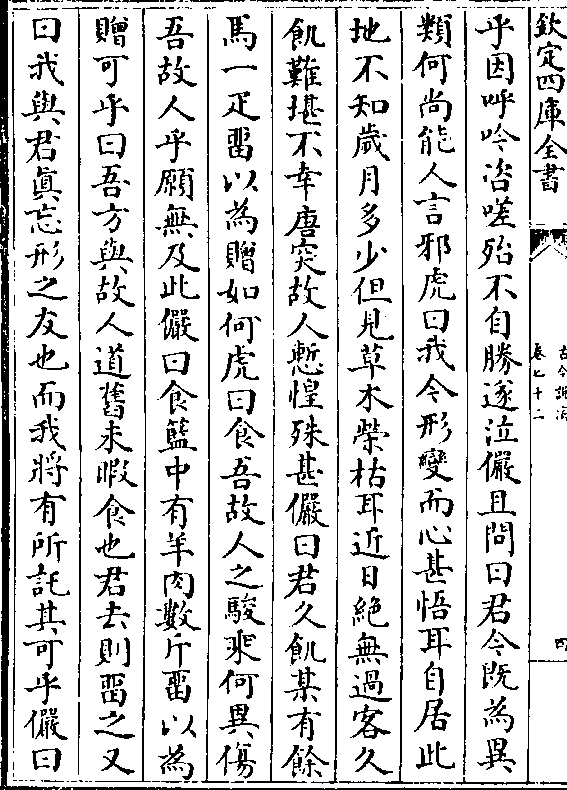 欽定四庫全書
古今說海
卷七十二
四
乎因呼吟咨嗟殆不自勝遂泣儼且問曰君今旣為異
類何尚能人言邪虎曰我今形變而心甚悟耳自居此
地不知歲月多少但見草木榮枯耳近日絶無過客久
飢難堪不幸唐突故人慙惶殊甚儼曰君久飢某有餘
馬一疋畱以為贈如何虎曰食吾故人之駿乘何異傷
吾故人乎願無及此儼曰食籃中有羊肉數斤畱以為
贈可乎曰吾方與故人道舊未暇食也君去則畱之又
曰我與君眞忘形之友也而我將有所託其可乎儼曰